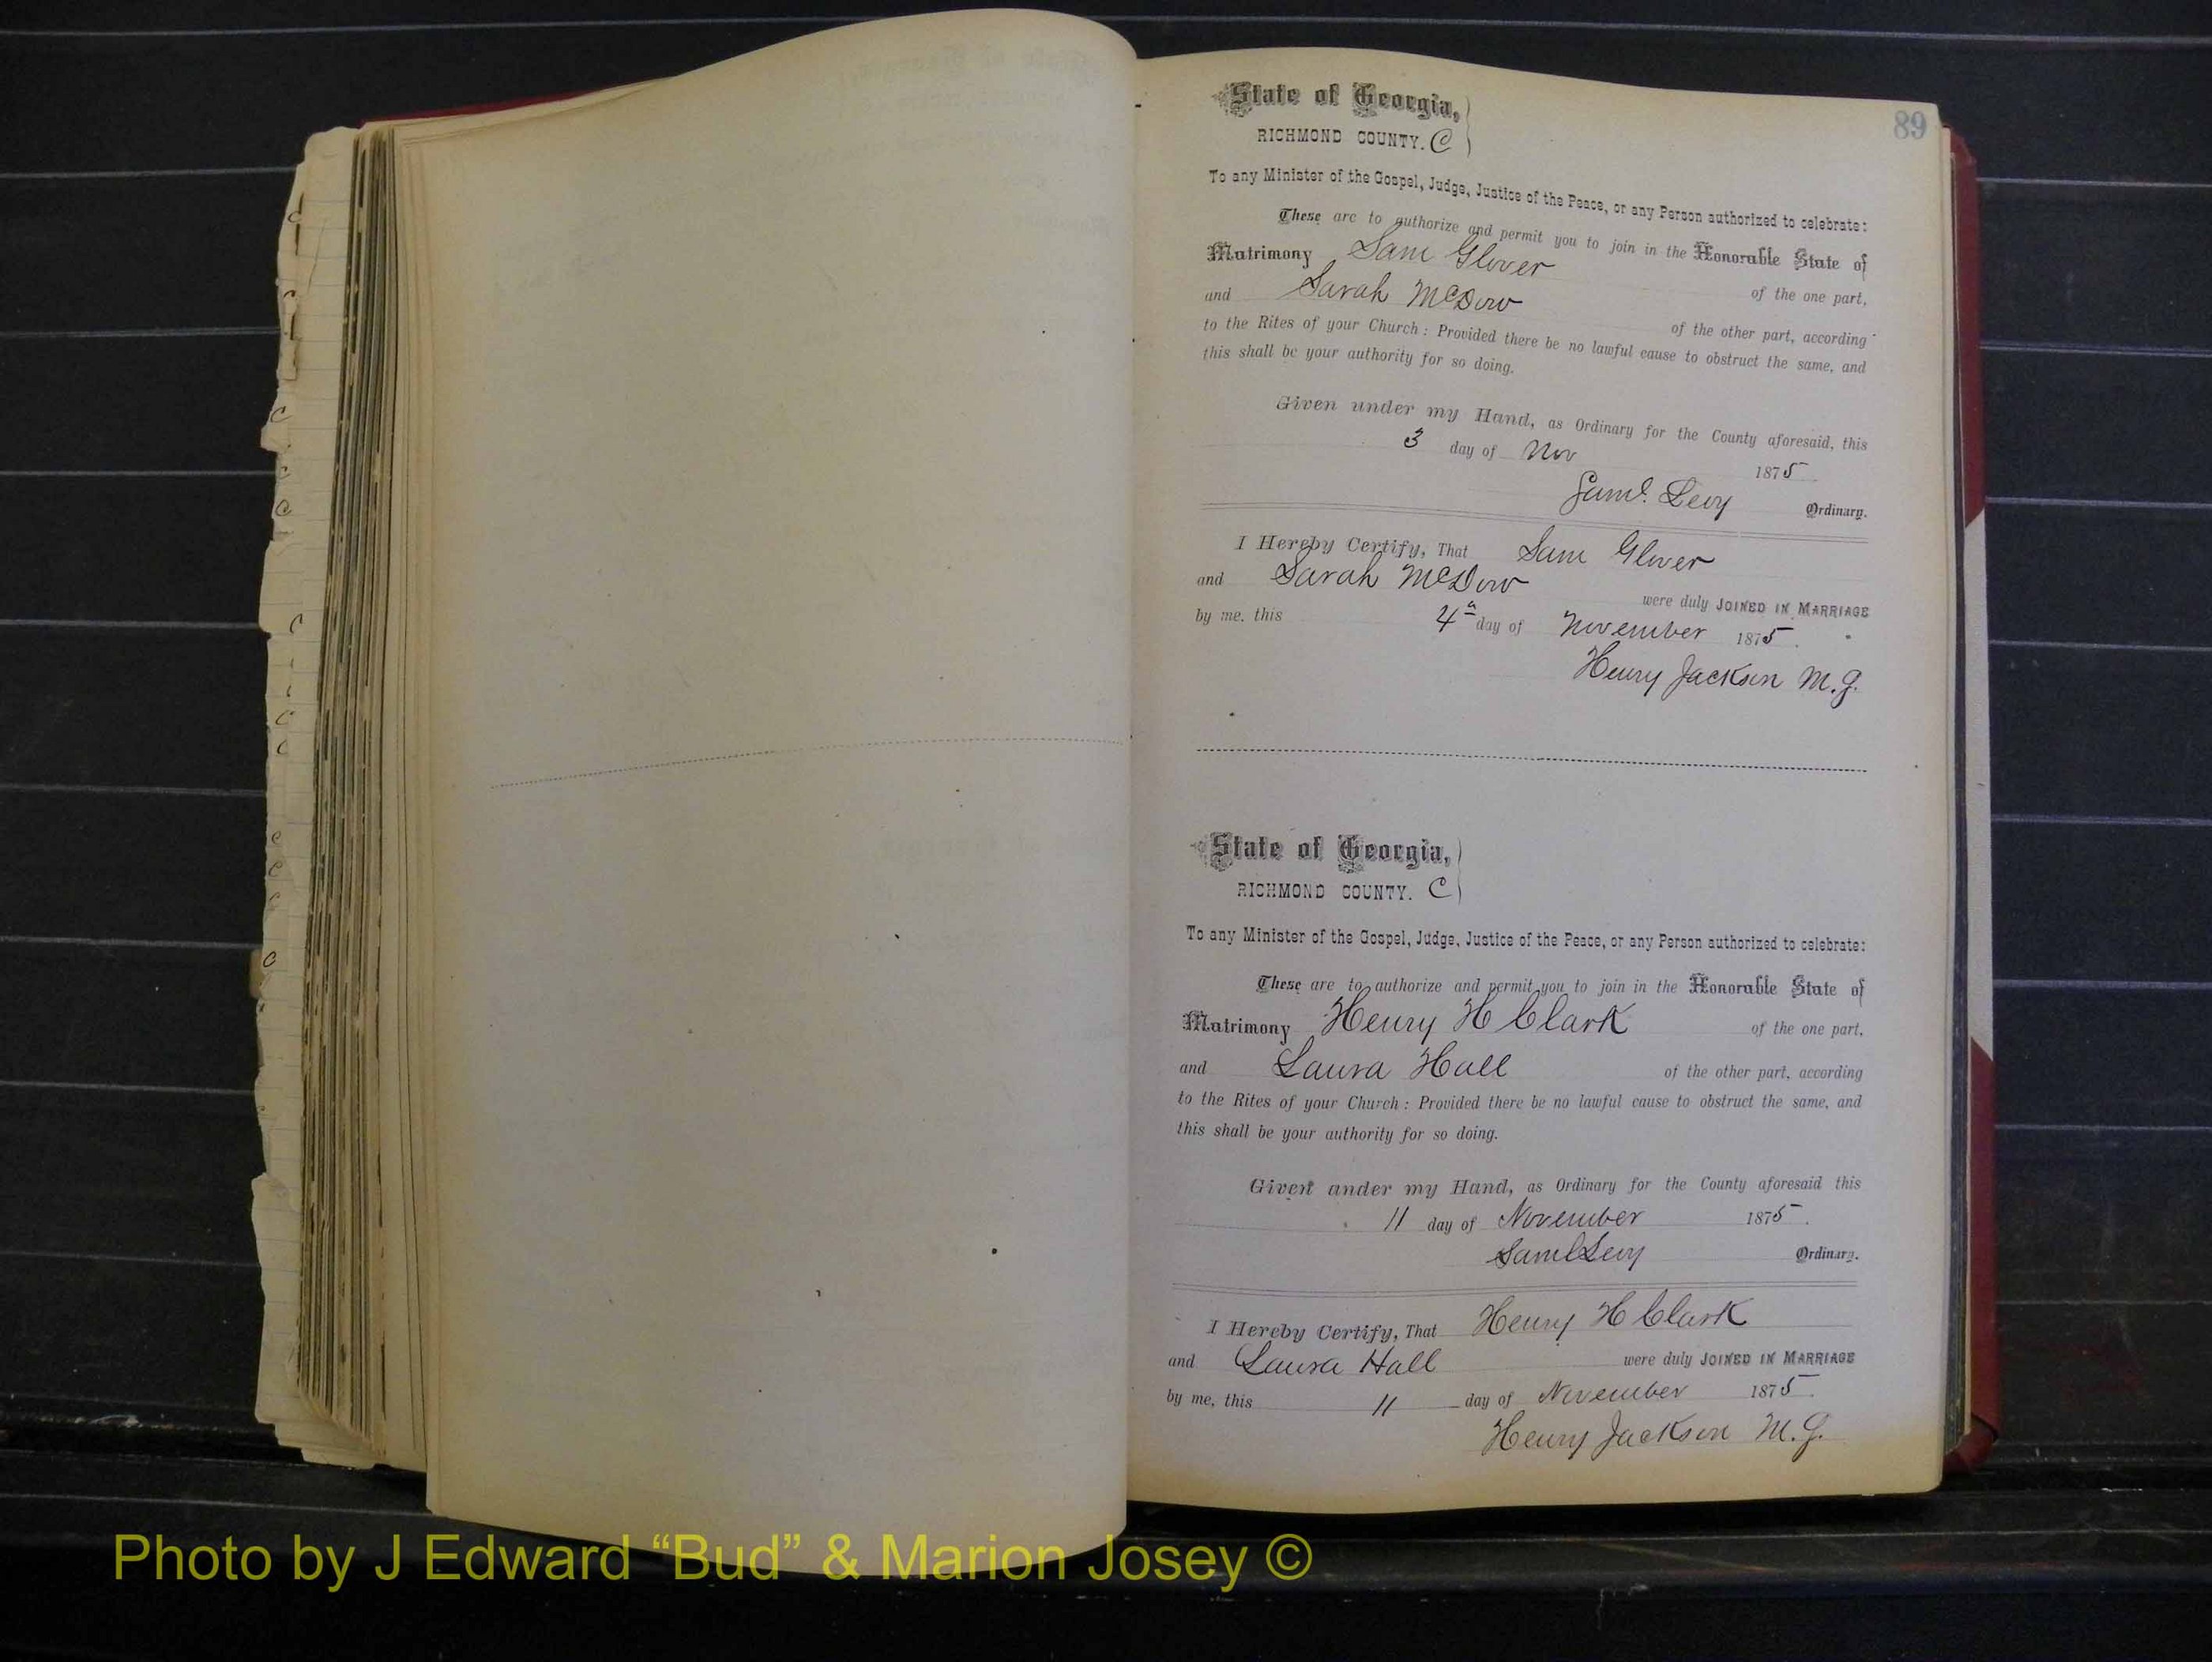 89
State of Georgia,
RICHMOND COUNTY. C
To any Minister of the Gospel, Judge, Justice of the Peace, or any Person authorized to celebrate:
These are to authorize and permit you to join in the Honorable State of
Matrimony Sam Glover of the one part,
and Sarah McDow of the other part, according
to the Rites of your Church: Provided there be no lawful cause to obstruct the same, and
this shall be your authority for so doing.
Given under my Hand, as Ordinary for the County aforesaid, this
3 day of Nov 1875
Saml. Levy Ordinary.
I Hereby Certify, That Sam Glover
and Sarah McDow were duly JOINED IN MARRIAGE
by me, this 4 day of November 1875.
Henry Jackson M.G.
State of Georgia,
RICHMOND COUNTY. C
To any Minister of the Gospel, Judge, Justice of the Peace, or any Person authorized to celebrate:
These are to authorize and permit you to join in the Honorable State of
Matrimony Henry H Clark of the one part,
and Laura Hall of the other part, according
to the Rites of your Church: Provided there be no lawful cause to obstruct the same, and
this shall be your authority for so doing.
Given under my Hand, as Ordinary for the County aforesaid this
11 day of November 1875.
Saml Levy Ordinary.
I Hereby Certify, That Henry H Clark
and Laura Hall were duly JOINED IN MARRIAGE
by me, this 11 day of November 1875.
Henry Jackson M.G.
Photo by J Edward “Bud” & Marion Josey ©